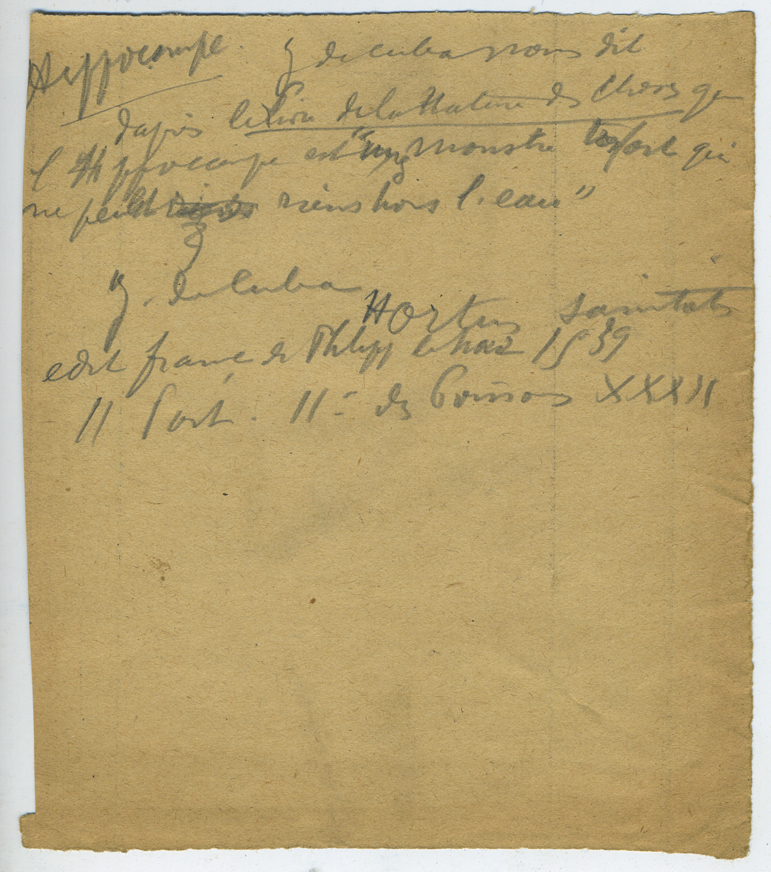 Hippocampe. J de Cuba nous dit
daprès le Livre de la Nature des Choses que
l'Hippocampe est "ung monstre fort qui
ne peult riens hors l'eau"
J. de Cuba Hortus sanitatis
edit franç de Philipp le Noir 1539
II Part. II des Poissons XXXII